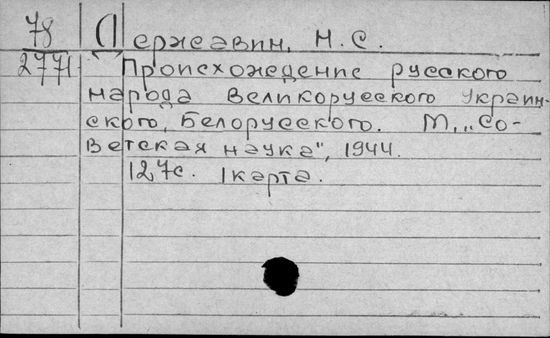 78 Державин, Н.С.
2771 Происхождение русского
народа великорусского украин-
ского, Белорусского. М., „Со-
ветская наука", 1944.
127с. 1карта.